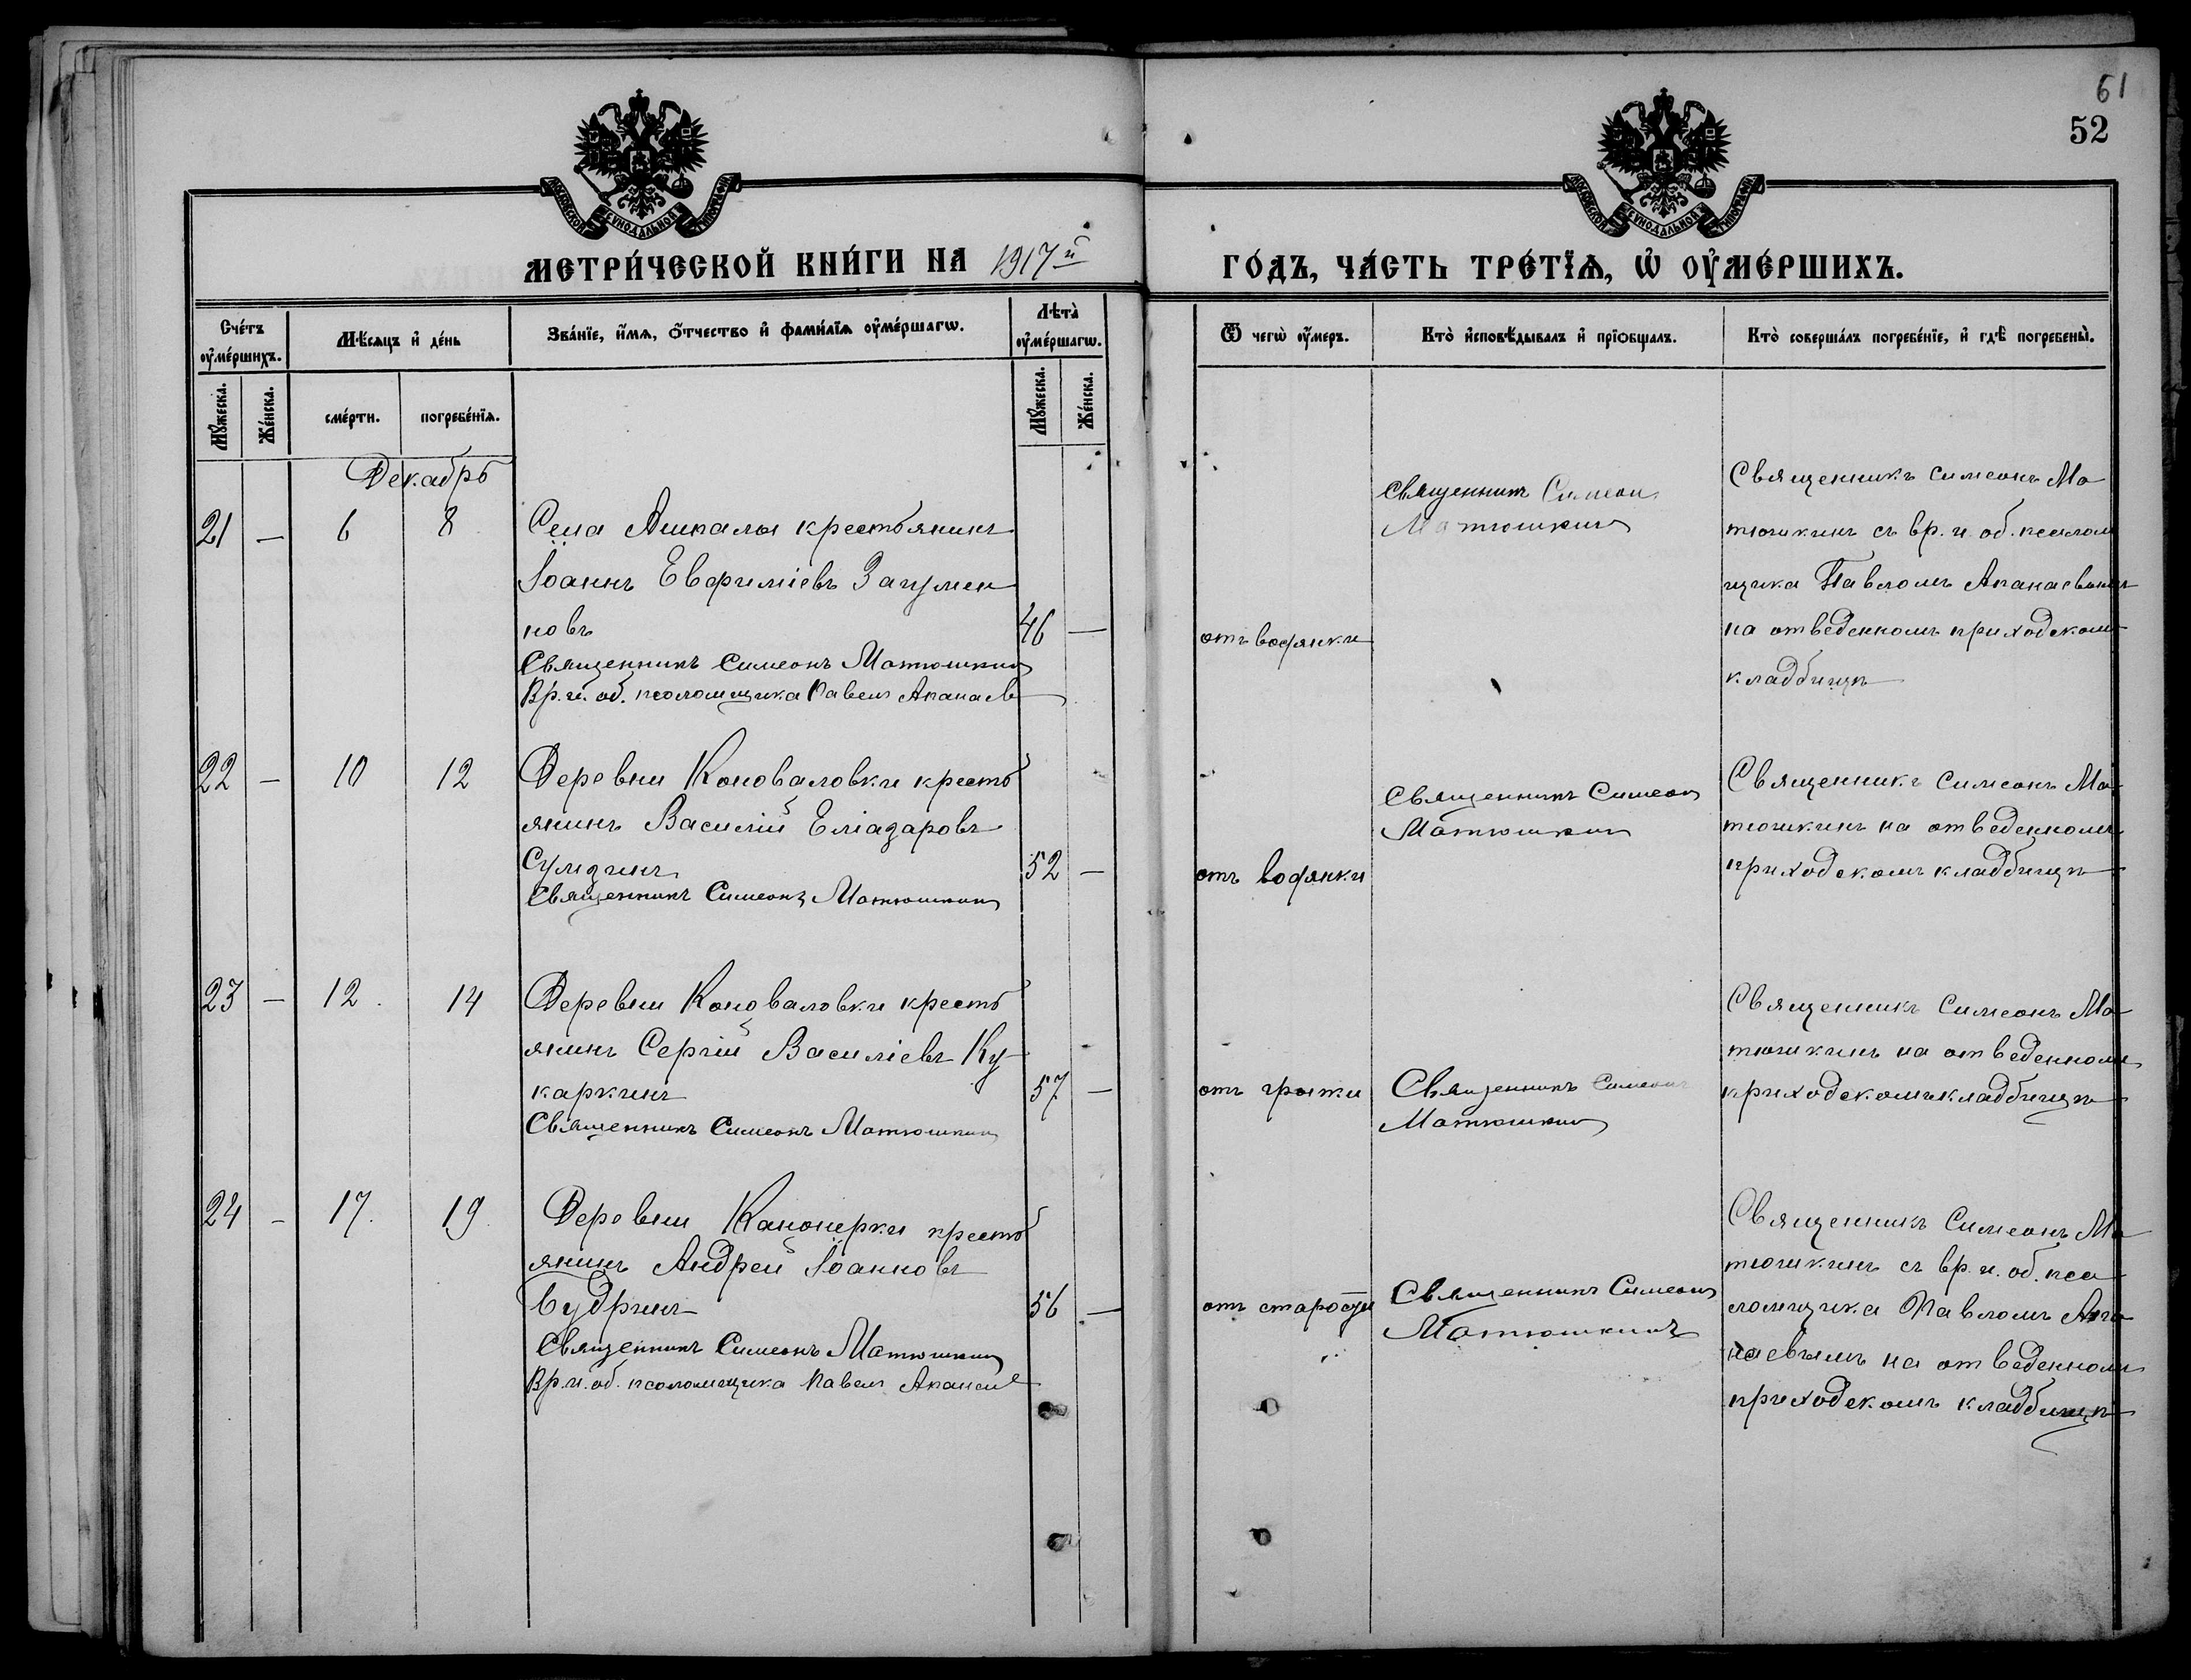 61
52
МОСКОВСКОЙ СѴНОДАЛЬНОЙ ТИПОГРАФІИ
МОСКОВСКОЙ СѴНОДАЛЬНОЙ ТИПОГРАФІИ
МЕТРИ́ЧЕСКОЙ КНИ́ГИ НА 1917й
ГО́ДЪ, ЧА́СТЬ ТРЕ́ТЇѦ, Ѡ҆ ОУ҆МЕ́РШИХЪ.
Сче́тъ оу҆ме́ршихъ.
Мѣ́сяцъ и҆ де́нь
Зва́нїе, и҆́мѧ, ѻ҆́тчество и҆ фами́лїѧ оу҆ме́ршагѡ.
Лѣта̀ оу҆ме́ршагѡ.
Ѿ чегѡ̀ оу҆́меръ.
Кто̀ и҆сповѣ́дывалъ и҆ прїѻбща́лъ.
Кто̀ соверша́лъ погребе́нїе, и҆ гдѣ̀ погребены̀.
Мꙋ́жеска. Же́нска.
сме́рти. погребе́нїѧ.
Мꙋ́жеска. Же́нска.
Декабрь
21 — 6 8
Села Ашкалы крестьянинъ
Іоаннъ Евфиміевъ Загумен
новъ 46 —
Священникъ Симеонъ Матюшкинъ
Вр. и. об. псаломщика Павелъ Апанаевъ
отъ водянки
Священникъ Симеон
Матюшкинъ
Священникъ Симеонъ Ма
тюшкинъ съ вр. и. об. псалом
щика Павломъ Апанаевымъ
на отведенномъ приходскомъ
кладбищѣ
22 — 10 12
Деревни Коноваловки кресть
янинъ Василій Еліазаровъ
Сумзинъ 52 —
Священникъ Симеонъ Матюшкинъ
отъ водянки
Священникъ Симеонъ
Матюшкинъ
Священникъ Симеонъ Ма
тюшкинъ на отведенномъ
приходскомъ кладбищѣ
23 — 12. 14
Деревни Коноваловки кресть
янинъ Сергій Василіевъ Ку
каркинъ 57 —
Священникъ Симеонъ Матюшкинъ
отъ грыжи
Священникъ Симеонъ
Матюшкинъ
Священникъ Симеонъ Ма
тюшкинъ на отведенномъ
приходскомъ кладбищѣ
24 — 17. 19
Деревни Канонерки кресть
янинъ Андрей Іоанновъ
Будринъ 56 —
Священникъ Симеонъ Матюшкинъ
Вр. и. об. псаломщика Павелъ Апанаев
отъ старости
Священникъ Симеонъ
Матюшкинъ
Священникъ Симеонъ Ма
тюшкинъ съ вр. и. об. пса
ломщика Павломъ Апа
наевымъ на отведенномъ
приходскомъ кладбищѣ